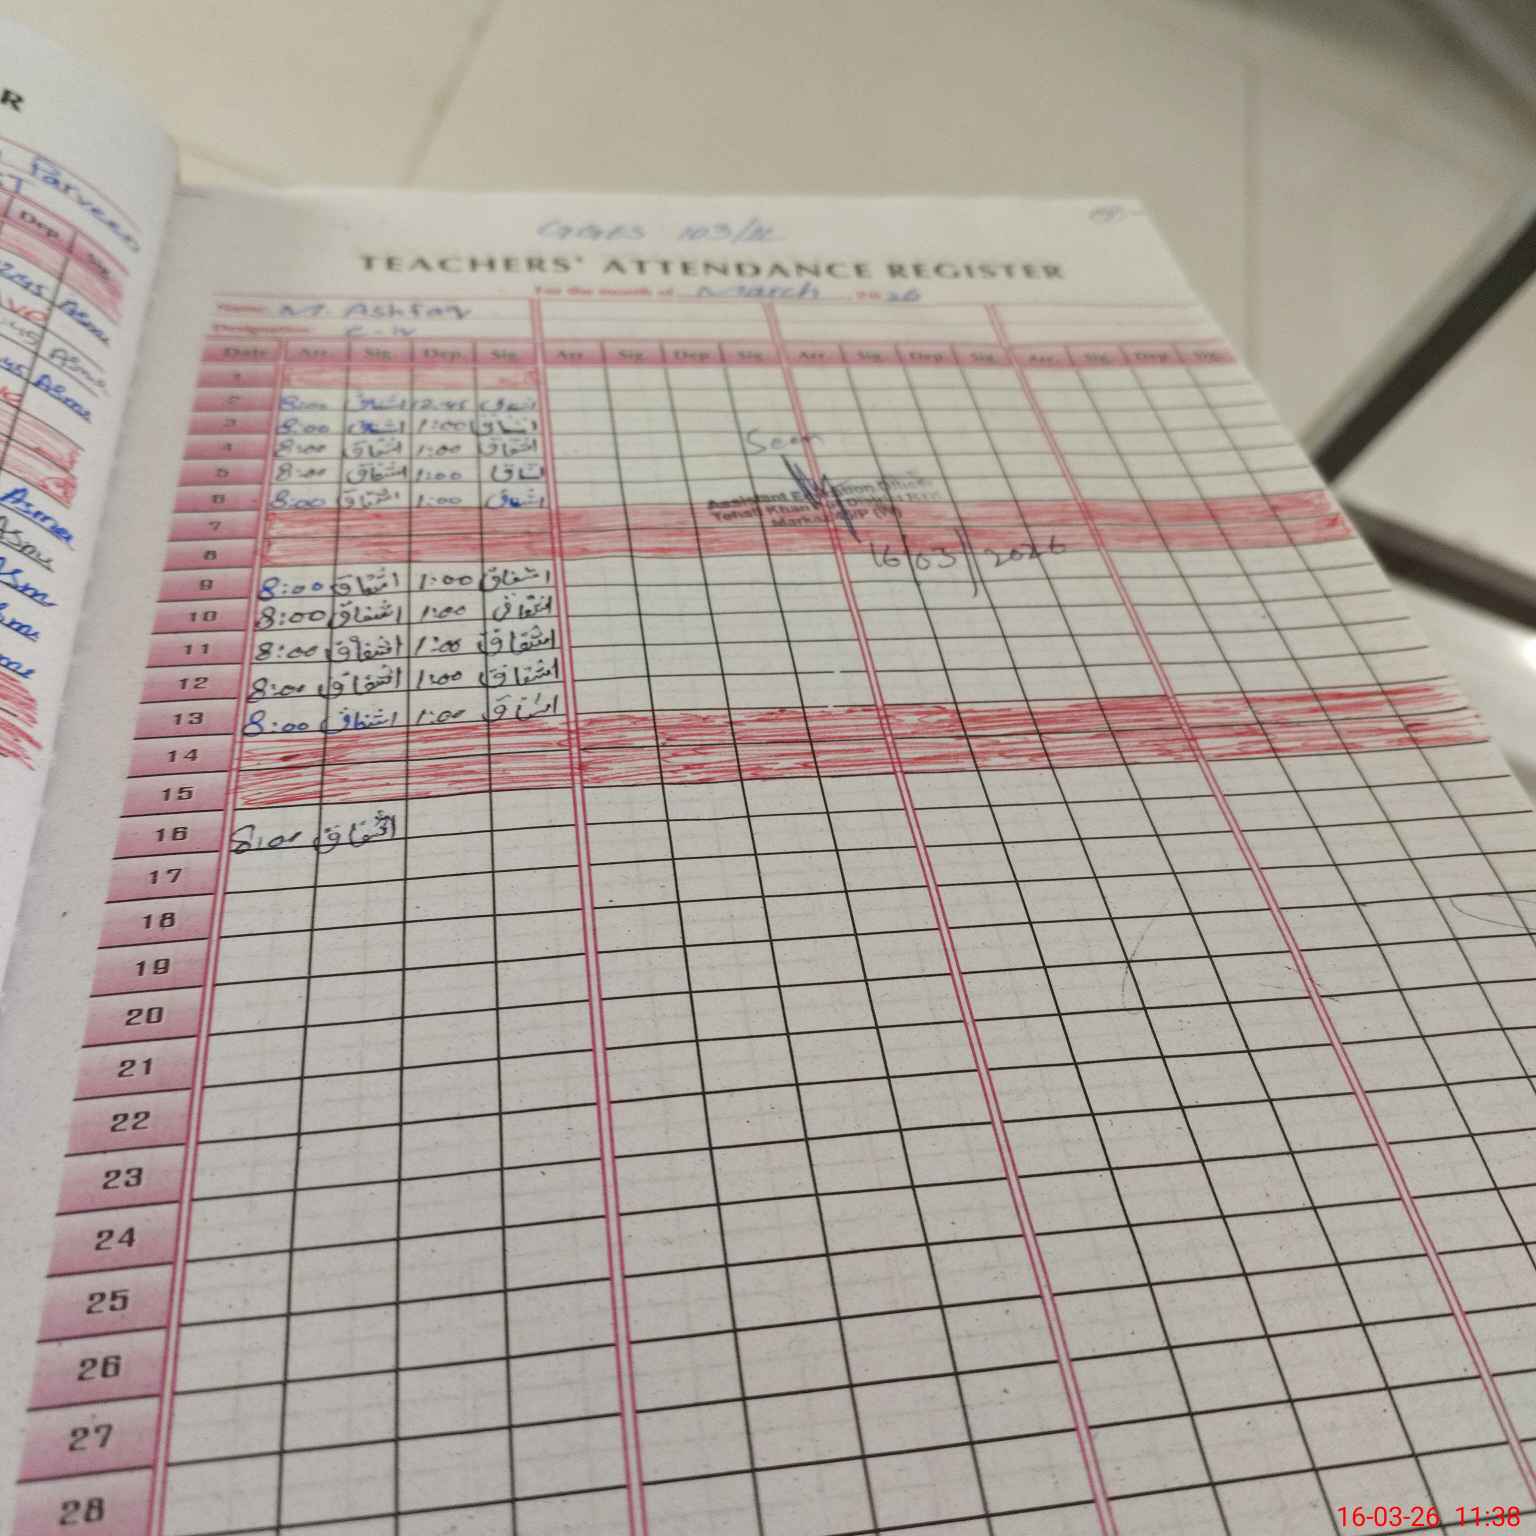 R
Parveen
Dep. Sig.
Asma
TEACHERS' ATTENDANCE REGISTER
For the month of March 2026
Name: M. Ashfaq
Designation: C-IV
Date Arr. Sig. Dep. Sig. Arr. Sig. Dep. Sig. Arr. Sig. Dep. Sig. Arr. Sig. Dep. Sig.
1
2 8:00 اشفاق 12:45 اشفاق
3 8:00 اشفاق 1:00 اشفاق
4 8:00 اشفاق 1:00 اشفاق
Seen
5 8:00 اشفاق 1:00 اشفاق
6 8:00 اشفاق 1:00 اشفاق
Assistant Education Officer
7
8
16/03/2026
9 8:00 اشفاق 1:00 اشفاق
10 8:00 اشفاق 1:00 اشفاق
11 8:00 اشفاق 1:00 اشفاق
12 8:00 اشفاق 1:00 اشفاق
13 8:00 اشفاق 1:00 اشفاق
14
15
16 8:00 اشفاق
17
18
19
20
21
22
23
24
25
26
27
28
16-03-26 11:38